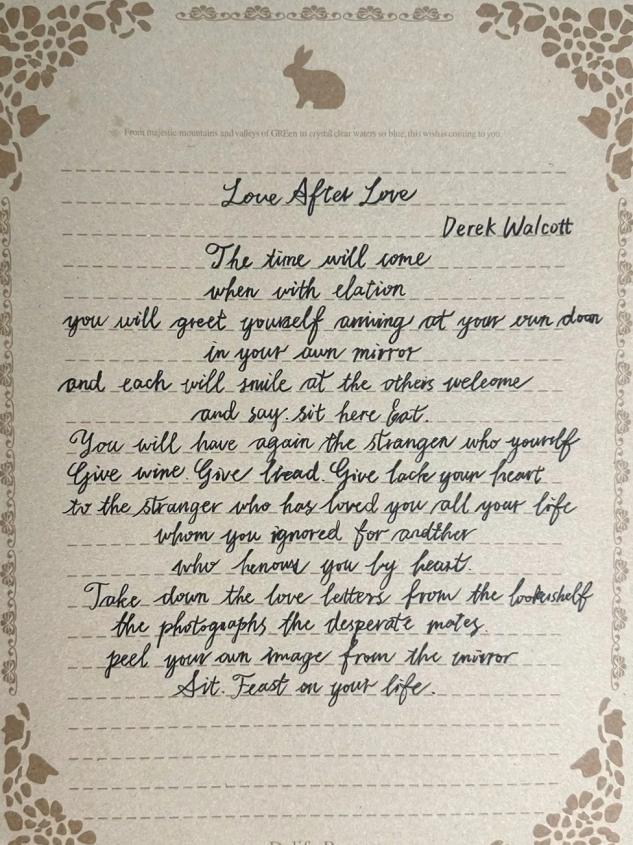 From majestic mountains and valleys of GREen to crystal clear waters so blue, this wish is coming to you.
Love After Love
Derek Walcott
The time will come
when with elation
you will greet yourself arriving at your own door
in your own mirror
and each will smile at the others welcome
and say. sit here Eat.
You will have again the strangen who yourself
Give wine. Give bread. Give back your heart
to the stranger who has loved you all your life
whom you ignored for another
who you by heart.
Take down the love letters from the bookshelf
the photographs the desperate notes.
peel your own image from the mirror
Sit. Feast on your life.